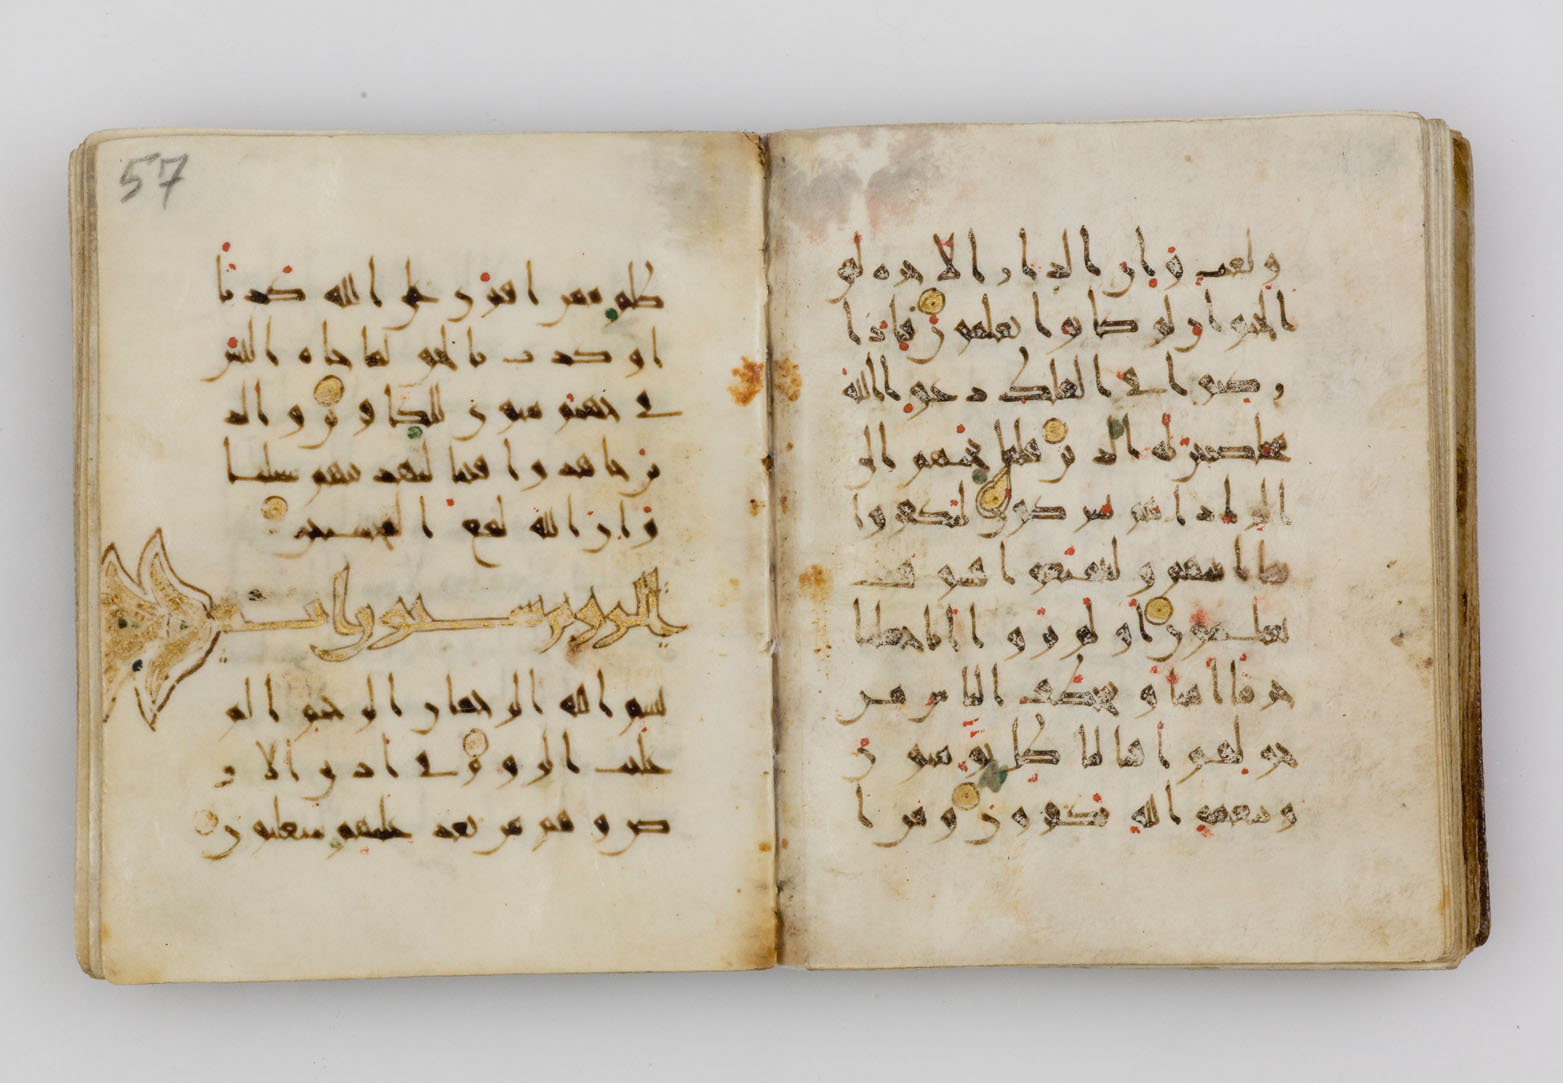 ولعب وان الدار الاخره لهي
الحيوان لو كانوا يعلمون فاذا
ركبوا في الفلك دعوا الله
مخلصين له الدين فلما نجيهم الى
البر اذا هم يشركون ليكفروا
بما اتينهم وليتمتعوا فسوف
يعلمون اولم يروا انا جعلنا
حرما امنا ويتخطف الناس من
حولهم افبالبطل يومنون
وبنعمه الله يكفرون ومن ا
57
ظلم ممن افترى على الله كذبا
او كذب بالحق لما جاه اليس
في جهنم مثوى للكفرين والذ
ين جاهدوا فينا لنهدينهم سبلنا
وان الله لمع المحسنين
الروم ستون ايت
بسم الله الرحمان الرحيم الم
غلبت الروم في ادنى الار
ض وهم من بعد غلبهم سيغلبون